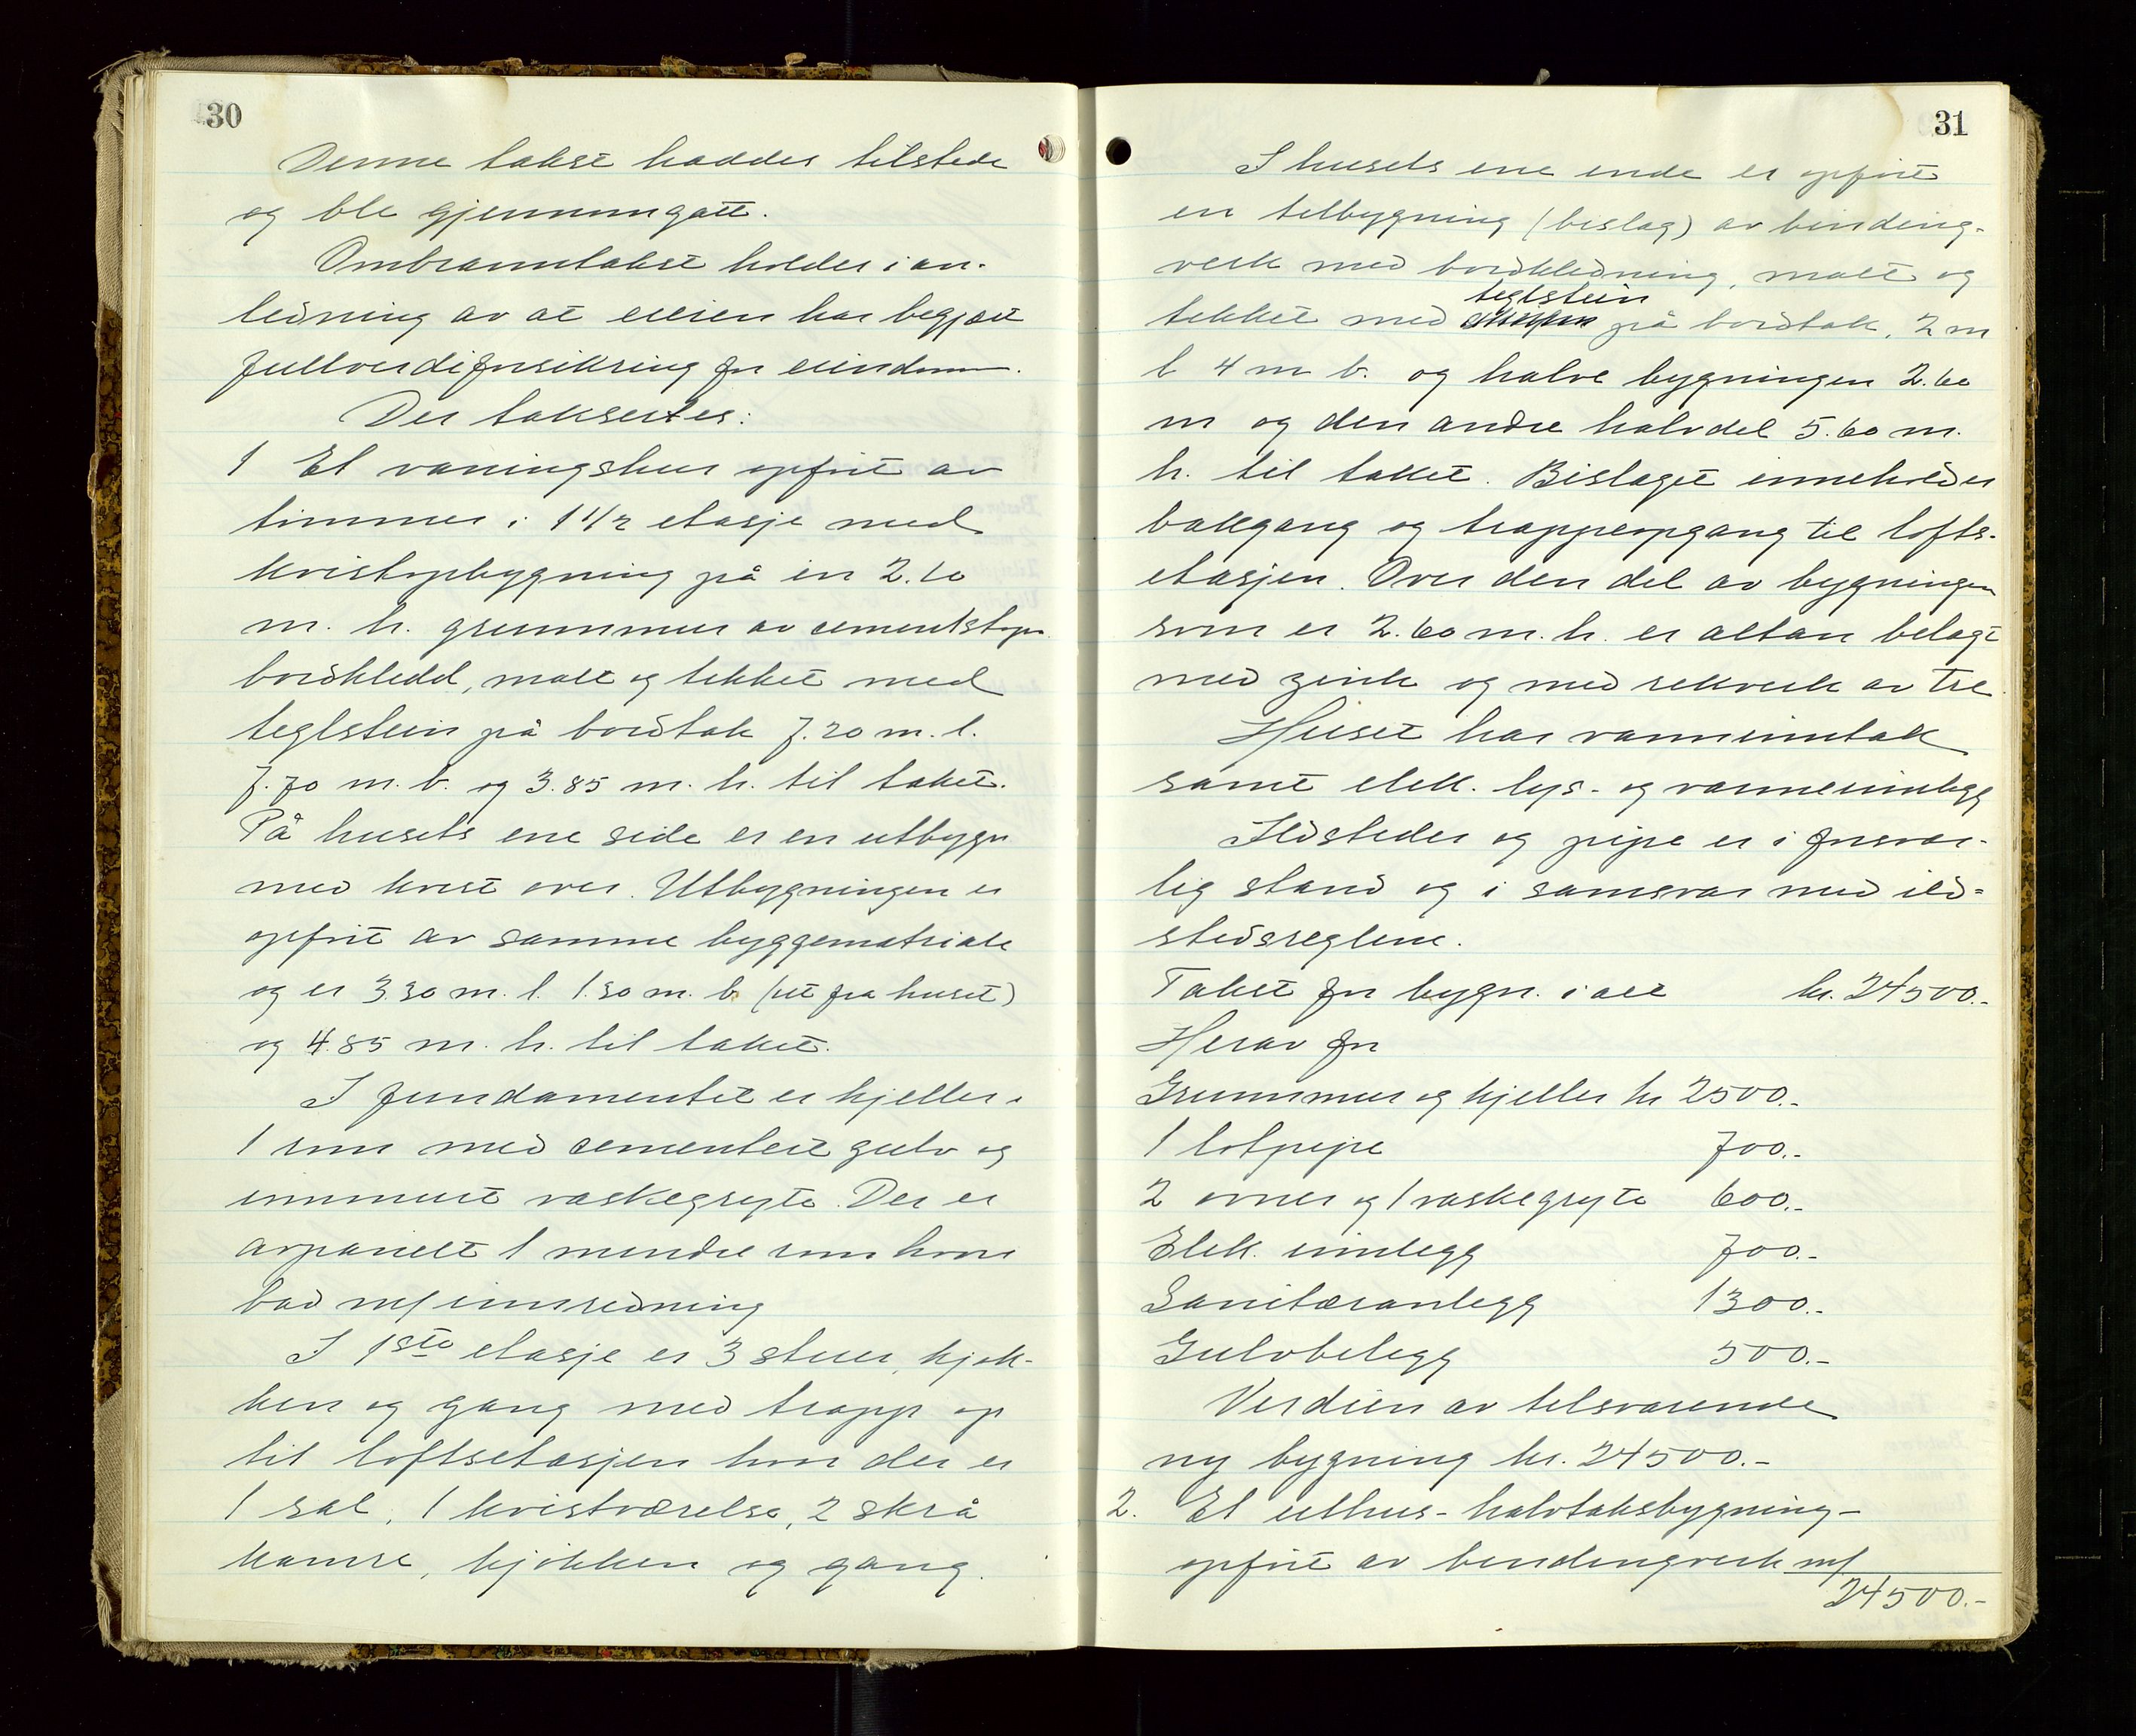 30
Denne takst haddes tilstede
og ble gjennomgått.
Ombranntakst holdes i an-
ledning av at eieren har begjært
fullverdiforsikring for eiendom.
Der taksertes:
1 Et våningshus opført av
tømmer i 1 1/2 etasje med
kvistopbygning på en 2.10
m. h. grunnmur av cementstøp
bordkledd, malt og tekket med
teglstein på bordtak 7.20 m. l.
7.70 m. b. og 3.85 m. h. til taket.
På husets ene side er en utbygn
med kvist over. Utbygningen er
opført av samme byggematriale
og er 3.30 m. l. 1.30 m. b. (ut fra huset)
og 4.85 m. h. til taket.
I fundamentet er kjeller i
1 rum med cementert gulv og
innmurt vaskegryte. Der er
avpanelt 1 mindre rum hvor
bad m/ innredning
I 1ste etasje er 3 stuer, kjøk-
ken og gang med trapp op
til loftsetasjen hvor der er
1 sal, 1 kvistværelse, 2 skrå
kamre, kjøkken og gang.
31
I husets ene ende er opført
en tilbygning (bislag) av binding-
verk med bordkledning, malt og
teglstein
tekket med på bordtak, 2 m
l 4 m b. og halve bygningen 2.60
m og den andre halvdel 5.60 m.
h. til taket. Bislaget inneholder
bakgang og trappeopgang til lofts-
etasjen. Over den del av bygningen
som er 2.60 m. h. er altan belagt
med zink og med rekverk av tre.
Huset har vanninntak
samt elek. lys- og varmeinnlegg
Ildsteder og pipe er i forsvar-
lig stand og i samsvar med ild-
stedsreglene.
Takst for bygn. i alt kr. 24500.-
Herav for
Grunnmur og kjeller kr 2500.-
1 løtpipe 700.-
2 ovner og 1 vaskegryte 600.-
Elek. innlegg 700.-
Sanitæranlegg 1300.-
Gulvbelegg 500.-
Verdien av tilsvarende
ny bygning kr. 24500.-
2. Et uthus - halvtaksbygning -
opført av bindingverk m/
24500.-